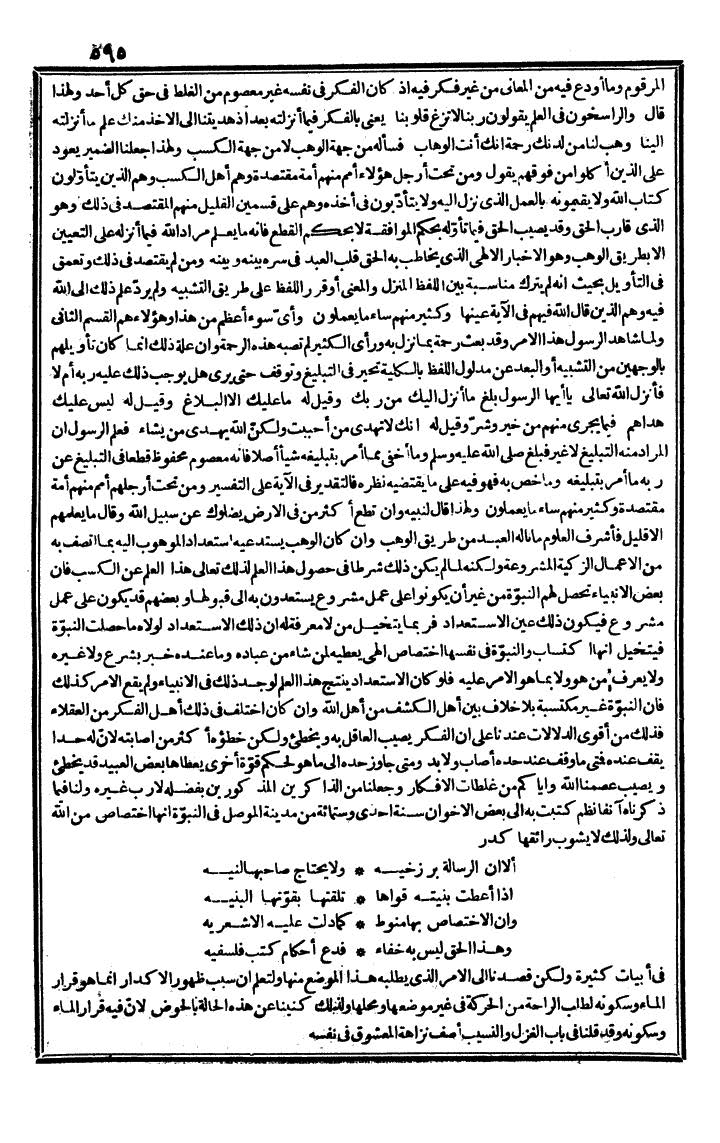 ٥٩٥
المرقوم وما أودع فيه من المعانى من غير فكر فيه اذ كان الفكر فى نفسه غير معصوم من الغلط فى حق كل أحد ولهذا
قال والراسخون فى العلم يقولون ربنا لا تزغ قلوبنا يعنى بالفكر فيما أنزلته بعد اذ هديتنا الى الاخذ منك علم ما أنزلته
الينا وهب لنا من لدنك رحمة انك أنت الوهاب فسأله من جهة الوهب لا من جهة الكسب ولهذا جعلنا الضمير يعود
على الذين أكلوا من فوقهم يقول ومن تحت أرجل هؤلاء أمم منهم أمة مقتصدة وهم أهل الكسب وهم الذين يتأولون
كتاب الله ولا يقيمونه بالعمل الذى نزل اليه ولا يتأدبون فى أخذه وهم على قسمين القليل منهم المقتصد فى ذلك وهو
الذى قارب الحق وقد يصيب الحق فيما تأوله بحكم الموافقة لا بحكم القطع فانه ما يعلم مراد الله فيما أنزله على التعيين
الا بطريق الوهب وهو الاخبار الالهى الذى يخاطب به الحق قلب العبد فى سره بينه وبينه ومن لم يقتصد فى ذلك وتعمق
فى التأويل بحيث انه لم يترك مناسبة بين اللفظ المنزل والمعنى أو قرر اللفظ على طريق التشبيه ولم يرد علم ذلك الى الله
فيه وهم الذين قال الله فيهم فى الآية عينها وكثير منهم ساء ما يعملون وأى سوء أعظم من هذا وهؤلاء هم القسم الثانى
ولما شاهد الرسول هذا الامر وقد بعث رحمة بما نزل به ورأى الكثير لم تصبه هذه الرحمة وان علة ذلك انما كان تأويلهم
بالوجهين من التشبيه أو البعد عن مدلول اللفظ بالكلية تحير فى التبليغ وتوقف حتى يرى هل يوجب ذلك عليه ربه أم لا
فأنزل الله تعالى يا أيها الرسول بلغ ما أنزل اليك من ربك وقيل له ما عليك الا البلاغ وقيل له ليس عليك
هداهم فيما يجرى منهم من خير وشر وقيل له انك لا تهدى من أحببت ولكن الله يهدى من يشاء فعلم الرسول ان
المراد منه التبليغ لا غير فبلغ صلى الله عليه وسلم وما أخفى مما أمر بتبليغه شيأ أصلا فانه معصوم محفوظ قطعا فى التبليغ عن
ربه ما أمر بتبليغه وما خص به فهو فيه على ما يقتضيه نظره فالتقدير فى الآية على التفسير ومن تحت أرجلهم أمم منهم أمة
مقتصدة وكثير منهم ساء ما يعملون ولهذا قال لنبيه وان تطع أكثر من فى الارض يضلوك عن سبيل الله وقال ما يعلمهم
الا قليل فأشرف العلوم ما ناله العبد من طريق الوهب وان كان الوهب يستدعيه استعداد الموهوب اليه بما اتصف به
من الاعمال الزكية المشروعة ولكنه لما لم يكن ذلك شرطا فى حصول هذا العلم لذلك تعالى هذا العلم عن الكسب فان
بعض الانبياء تحصل لهم النبوة من غير أن يكونوا على عمل مشروع يستعدون به الى قبولها وبعضهم قد يكون على عمل
مشروع فيكون ذلك عين الاستعداد فربما يتخيل من لا معرفة له ان ذلك الاستعداد لولاه ما حصلت النبوة
فيتخيل انها اكتساب والنبوة فى نفسها اختصاص الهى يعطيه لمن شاء من عباده وما عنده خبر بشرع ولا غيره
ولا يعرف من هو ولا بما هو الامر عليه فلو كان الاستعداد ينتج هذا العلم لوجد ذلك فى الانبياء ولم يقع الامر كذلك
فان النبوة غير مكتسبة بلا خلاف بين أهل الكشف من أهل الله وان كان اختلف فى ذلك أهل الفكر من العقلاء
فذلك من أقوى الدلالات عندنا على ان الفكر يصيب العاقل به ويخطئ ولكن خطؤه أكثر من اصابته لان له حدا
يقف عنده فمتى ما وقف عند حده أصاب ولا بد ومتى جاوز حده الى ما هو لحكم قوة أخرى يعطاها بعض العبيد قد يخطئ
ويصيب عصمنا الله واياكم من غلطات الافكار وجعلنا من الذاكرين المذكورين بفضله لا رب غيره ولنا فيما
ذكرناه آنفا نظم كتبت به الى بعض الاخوان سنة احدى وستمائة من مدينة الموصل فى النبوة انها اختصاص من الله
تعالى ولذلك لا يشوب رائقها كدر
ألا ان الرسالة برزخيه * ولا يحتاج صاحبها لنيه
اذا أعطت بنيته قواها * تلقتها بقوتها البنيه
وان الاختصاص بها منوط * كما دلت عليه الاشعريه
وهذا الحق ليس به خفاء * فدع أحكام كتب فلسفيه
فى أبيات كثيرة ولكن قصدنا الى الامر الذى يطلبه هذا الموضع منها ولتعلم ان سبب ظهور الاكدار انما هو قرار
الماء وسكونه لطلب الراحة من الحركة فى غير موضعها ومحلها ولذلك كنينا عن هذه الحالة بالحوض لان فيه قرار الماء
وسكونه وقد قلنا فى باب الغزل والنسيب أصف نزاهة المعشوق فى نفسه